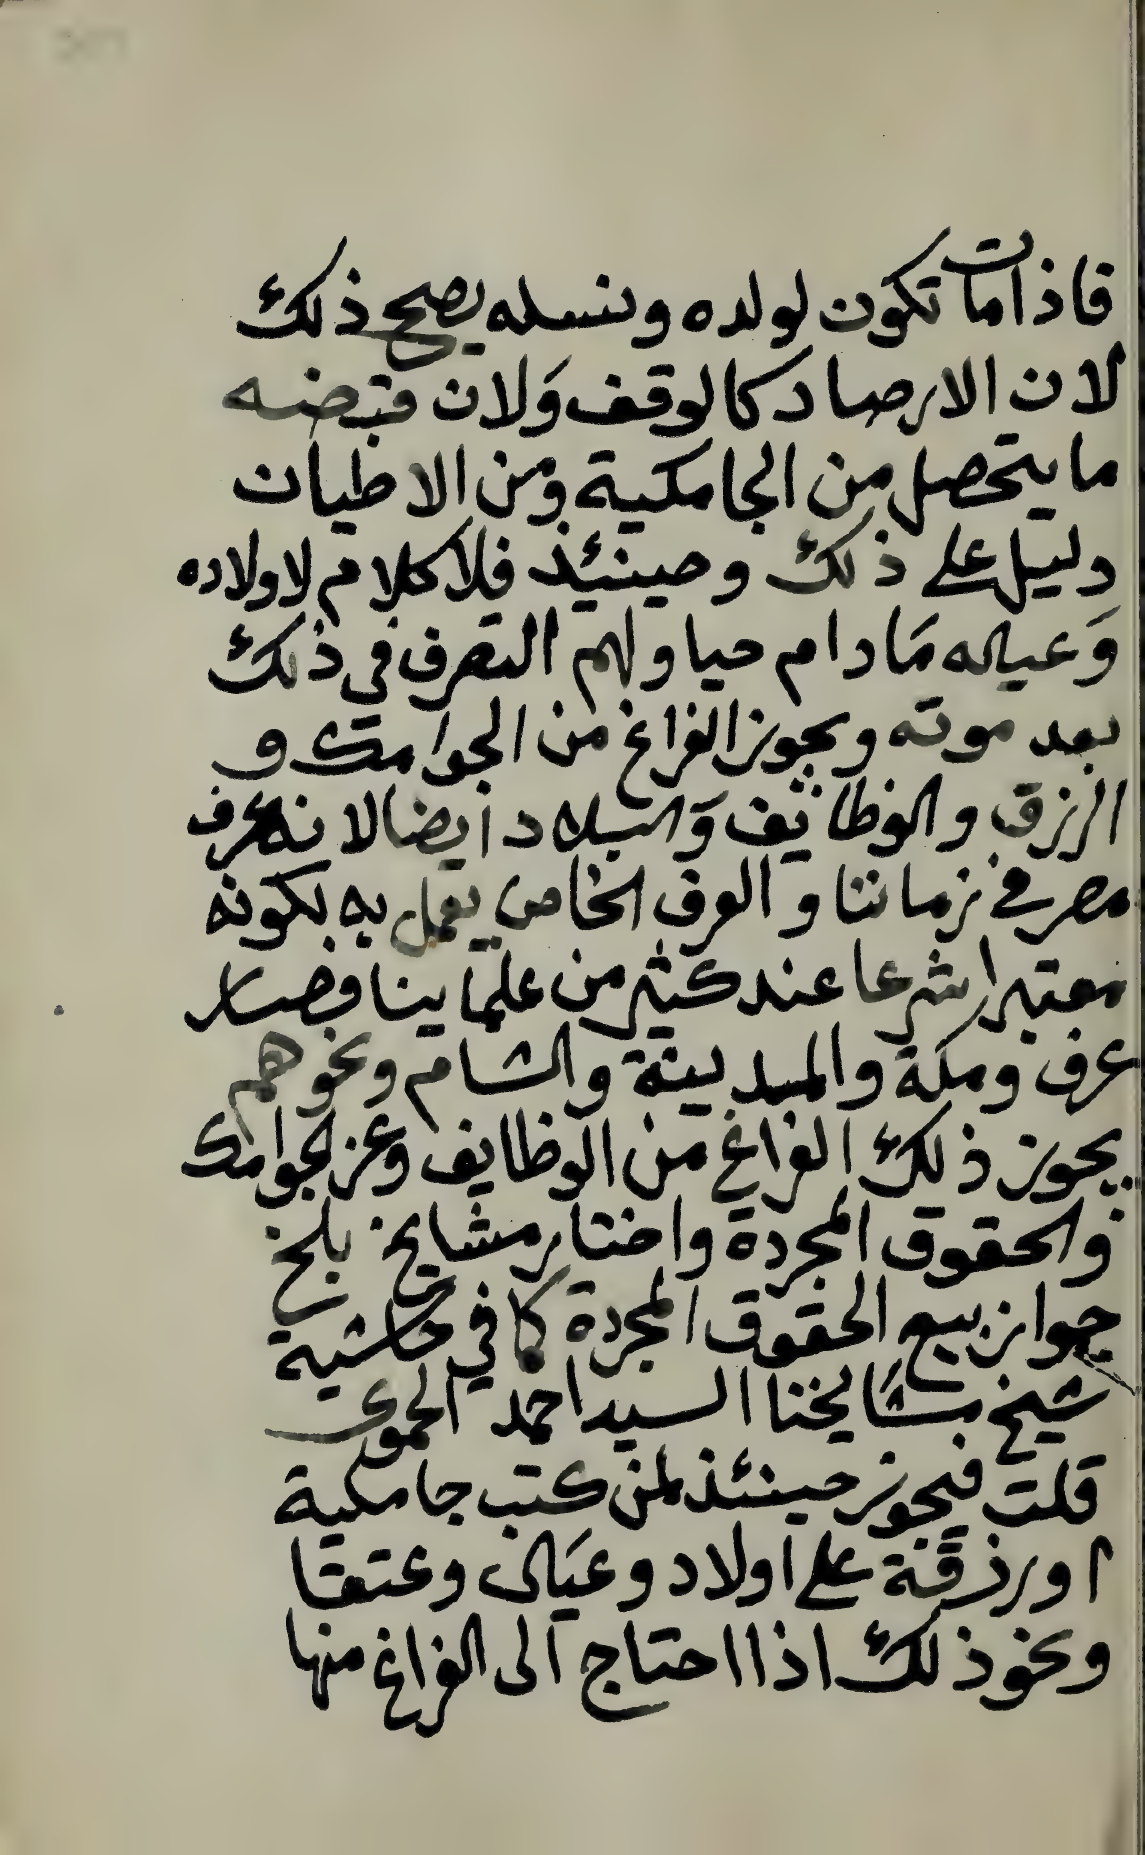 فاذا مات تكون لولده ونسله يصح ذلك
لان الارصاد كالوقف وَلان قبضه
ما يتحصل من الجامكية ومن الاطيان
دليل على ذلك وحينئذ فلا كلام لاولاده
وَعياله مَا دام حيا ولهم التصرف في ذلك
بعد موته ويجوز الفراغ من الجوامك و
الرزق والوظائف وَالبلاد أيضا لانه عرف
مصر في زماننا والعرف الخاص يعمل به بكونه
معتبرا شرعا عند كثير من علماينا فصار
عرف ومكة والمدينة والشام ونحوهم
يجوز ذلك الفراغ من الوظايف وعن الجوامك
والحقوق المجردة واختار مشايخ بلخ
جواز بيع الحقوق المجردة كما في حاشية
شيخ مشايخنا السيد احمد الحموى
قلت فيجوز حينئذ لمن كتب جامكية
او رزقة على اولاد وعيال وعتقا
ونحو ذلك اذا احتاج الى الفراغ منها